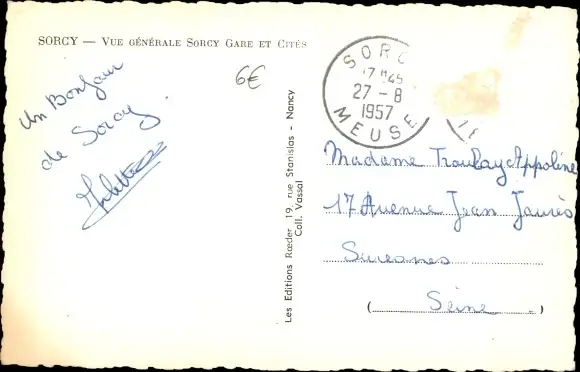 SORCY — VUE GÉNÉRALE SORCY GARE ET CITÉS
6€
Un Bonjour
de Sorcy
Les Editions Rœder 19, rue Stanislas - Nancy
Coll. Vassal
SORC
17 H 45
27 - 8
1957
MEUSE
Madame Troulay Appoline
17 Avenue Jean Jaurès
Suresnes
(Seine)